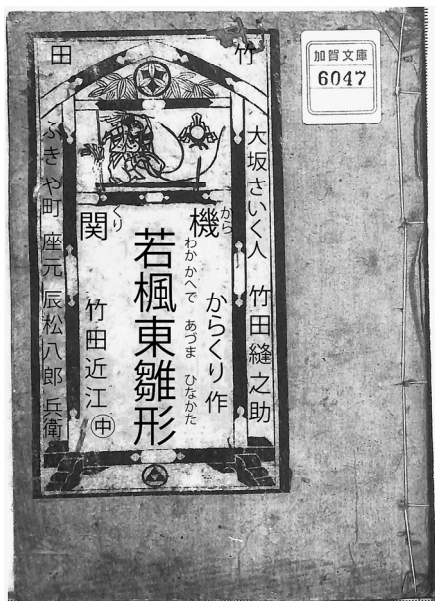 加賀文庫
6047
竹田
大坂さいく人 竹田縫之助
機関
からくり
からくり作
若楓東雛形
わかかへで あづま ひなかた
竹田近江㊥
ふきや町 座元 辰松八郎兵衛